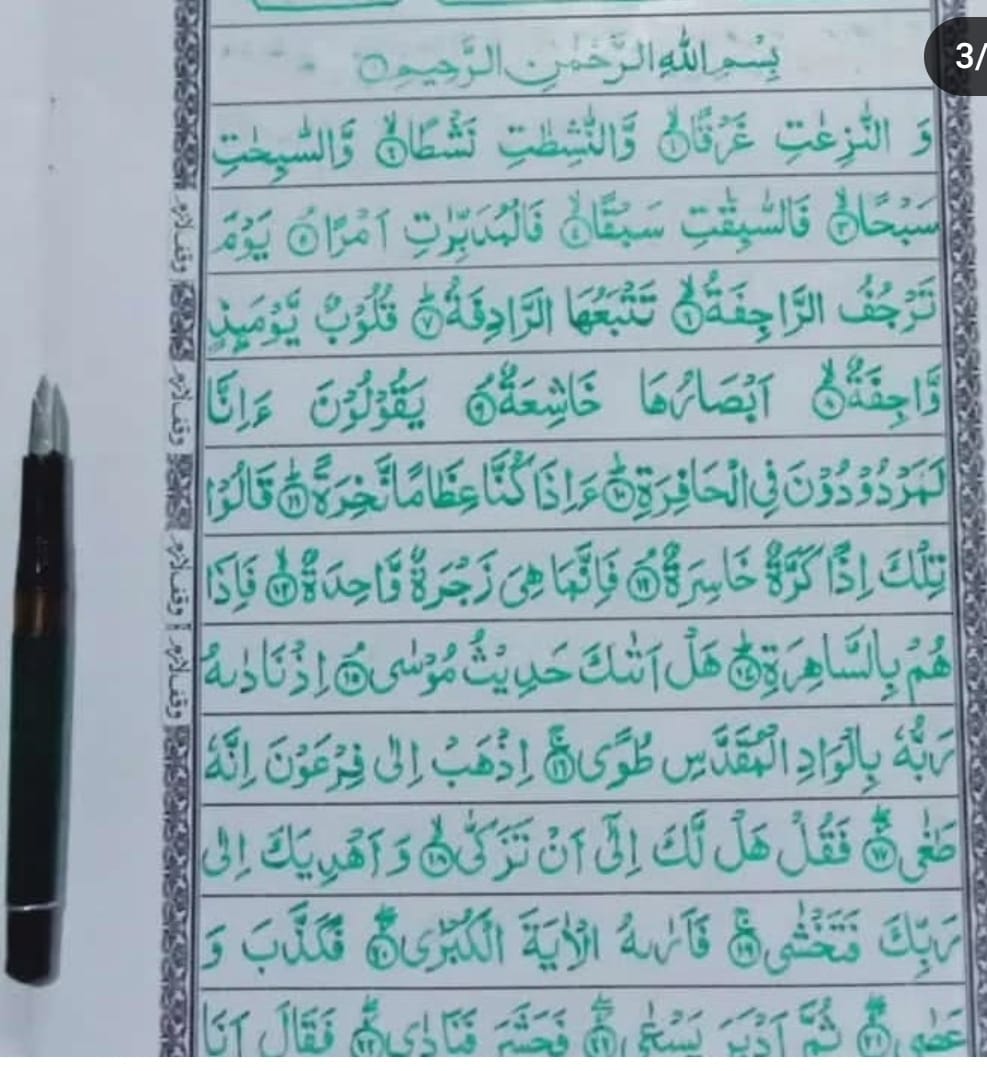 3/
بِسْمِ اللهِ الرَّحْمٰنِ الرَّحِيْمِ ○
وَ النّٰزِعٰتِ غَرْقًا ۙ﴿۱﴾ وَّالنّٰشِطٰتِ نَشْطًا ۙ﴿۲﴾ وَّالسّٰبِحٰتِ
سَبْحًا ۙ﴿۳﴾ فَالسّٰبِقٰتِ سَبْقًا ۙ﴿۴﴾ فَالْمُدَبِّرٰتِ اَمْرًا ۘ﴿۵﴾ يَوْمَ
تَرْجُفُ الرَّاجِفَةُ ۙ﴿۶﴾ تَتْبَعُهَا الرَّادِفَةُ ؕ﴿۷﴾ قُلُوْبٌ يَّوْمَىِٕذٍ
وَّاجِفَةٌ ۙ﴿۸﴾ اَبْصَارُهَا خَاشِعَةٌ ۘ﴿۹﴾ يَقُوْلُوْنَ ءَاِنَّا
لَمَرْدُوْدُوْنَ فِى الْحَافِرَةِ ؕ﴿۱۰﴾ ءَاِذَا كُنَّا عِظَامًا نَّخِرَةً ؕ﴿۱۱﴾ قَالُوْا
تِلْكَ اِذًا كَرَّةٌ خَاسِرَةٌ ۘ﴿۱۲﴾ فَاِنَّمَا هِىَ زَجْرَةٌ وَّاحِدَةٌ ۙ﴿۱۳﴾ فَاِذَا
هُمْ بِالسَّاهِرَةِ ؕ﴿۱۴﴾ هَلْ اَتٰٮكَ حَدِيْثُ مُوْسٰى ۘ﴿۱۵﴾ اِذْ نَادٰٮهُ
رَبُّهٗ بِالْوَادِ الْمُقَدَّسِ طُوًى ۚ﴿۱۶﴾ اِذْهَبْ اِلٰى فِرْعَوْنَ اِنَّهٗ
طَغٰى ۖ﴿۱۷﴾ فَقُلْ هَلْ لَّكَ اِلٰٓى اَنْ تَزَكّٰى ۙ﴿۱۸﴾ وَ اَهْدِيَكَ اِلٰى
رَبِّكَ فَتَخْشٰى ۚ﴿۱۹﴾ فَاَرٰٮهُ الْاٰيَةَ الْكُبْرٰى ۖ﴿۲۰﴾ فَكَذَّبَ وَ
عَصٰى ۖ﴿۲۱﴾ ثُمَّ اَدْبَرَ يَسْعٰى ۖ﴿۲۲﴾ فَحَشَرَ فَنَادٰى ۖ﴿۲۳﴾ فَقَالَ اَنَا
وقف لازم
وقف لازم
وقف لازم
وقف لازم